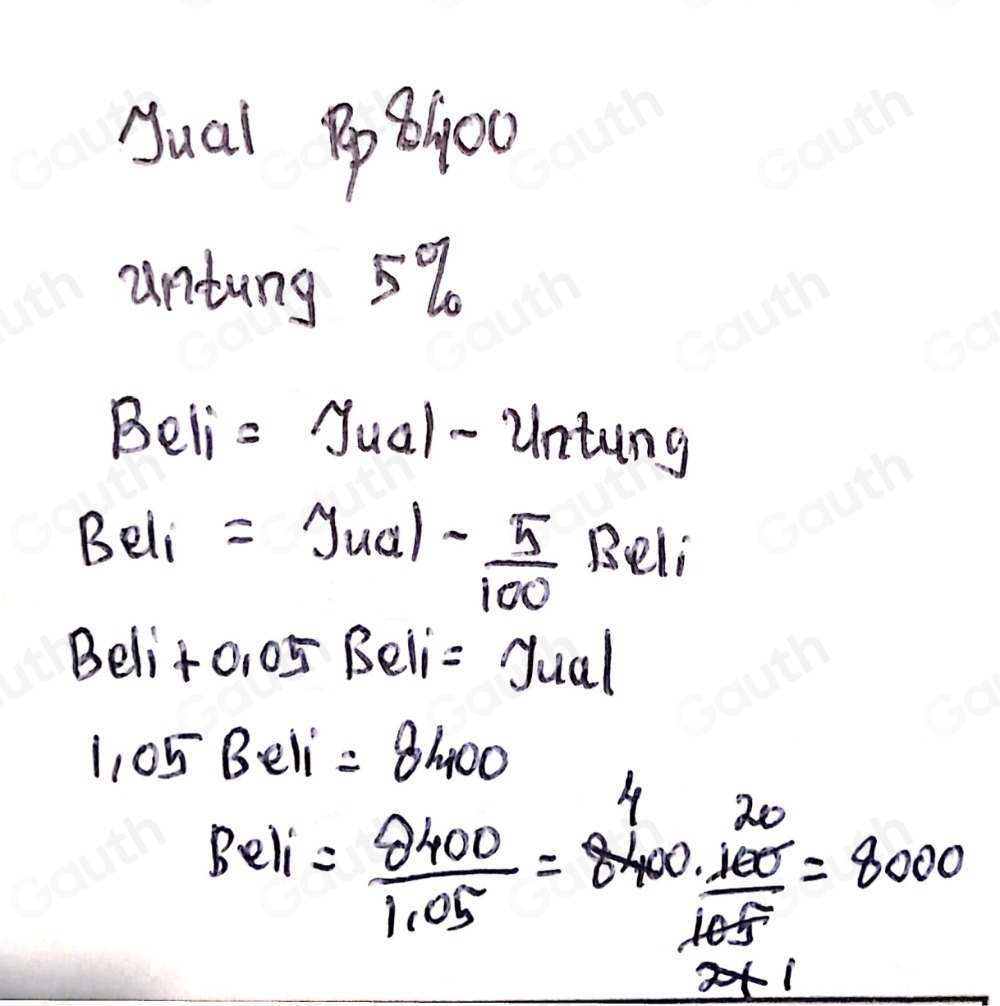 Jual Rp 8400
Untung 5%
Beli = Jual - Untung
Beli = Jual - 5/100 Beli
Beli + 0,05 Beli = Jual
1,05 Beli = 8400
Beli = 8400/1,05 = 8400 . 100/105 = 8000
4 20
21 1